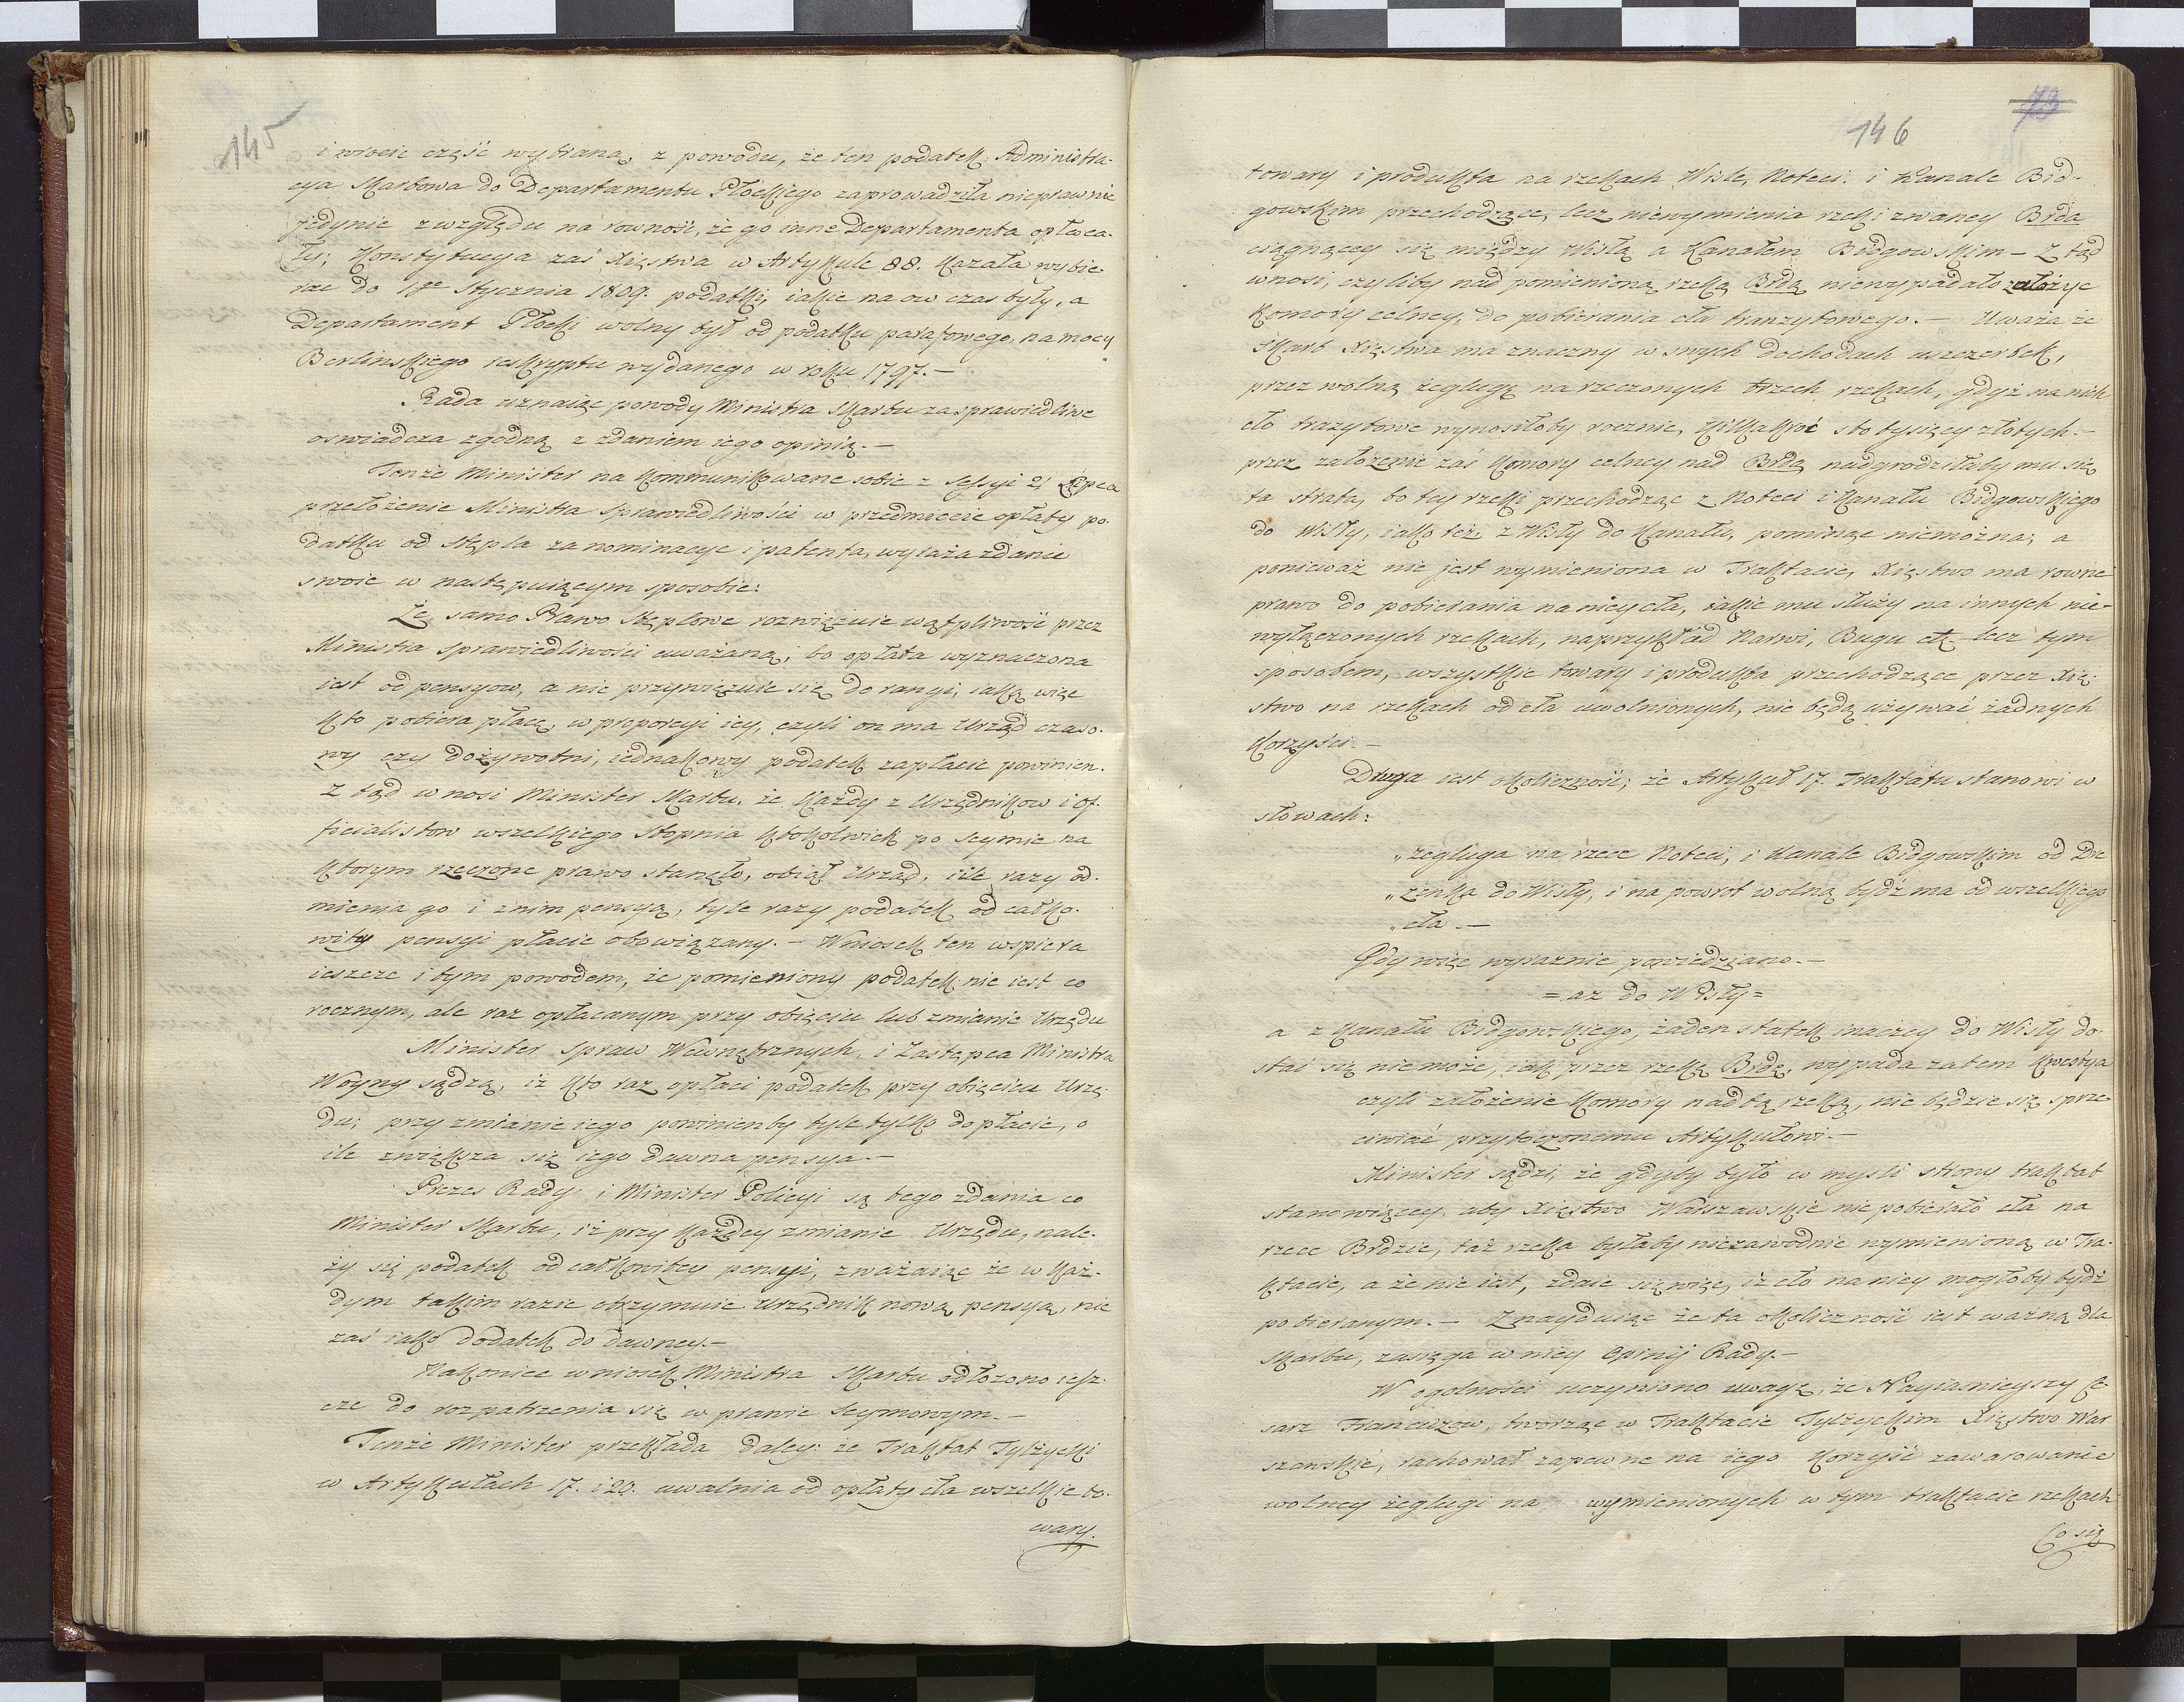 145
i wrocic część wybraną, z powodu, że ten podatek Administra-
cya Skarbowa do Departamentu Płockiego zaprowadziła nieprawnie
jedynie z względu na rowność, że go inne Departamenta opłaca-
ły; Konstytucya zaś Xięstwa w Artykule 88. kazała wybie-
rac do 1go Stycznia 1809. podatki, iakie na ow czas były, a
Departament Płocki wolny był od podatku parafowego, na mocy
Berlinskiego reskryptu wydanego w roku 1797.–
Rada uznaiąc powody Ministra Skarbu za sprawiedliwe
oswiadcza zgodną z zdaniem iego opinią.–
Tenże Minister na kommunikowane sobie z Sessyi 21 Lipca
przełożenie Ministra Sprawiedliwości w przedmiocie opłaty po-
datku od stępla za nominacye i patenta, wyraża zdanie
swoie w następuiącym sposobie:
Że samo Prawo Stęplowe rozwięzuie wątpliwość przez
Ministra Sprawiedliwości uważaną; bo opłata wyznaczona
iest od pensyow, a nie przywięzuie się do rangi, iaką więc
kto pobiera płacę, w proporcyi iey, czyli on ma Urząd czaso-
wy czy dożywotni, iednakowy podatek zapłacic powinien.
Z tąd wnosi Minister Skarbu. że każdy z Urzędnikow i of-
ficialistow wszelkiego stopnia ktokolwiek po Seymie na
ktorym rzeczone prawo stanęło, obiął Urząd, ile razy od-
mienia go i z nim pensyą, tyle razy podatek od całko-
wity pensyi płacic obowiązany.– Wniosek ten wspiera
ieszcze i tym powodem, że pomieniony podatek nie iest co
rocznym, ale raz opłacanym przy obięciu lub zmianie Urzędu
Minister Spraw Wewnętrznych, i Zastępca Ministra
Woyny sądzą, iż kto raz opłaci podatek przy obięciu Urzę-
du; przy zmianie iego powinienby tyle tylko dopłacic, o
ile zwiększa się iego dawna pensya.–
Prezes Rady i Minister Policyi są tego zdania co
Minister Skarbu, iż przy każdey zmianie Urzędu, nale-
ży się podatek od całkowitey pensyi, zważaiąc że w każ-
dym takim razie otrzymuie Urzędnik nową pensyą, nie
zaś iako dodatek do dawney.–
Nakoniec wniosek Ministra Skarbu odłożono iesz-
cze do rozpatrzenia się w prawie Seymowym.–
Tenże Minister przekłada daley: że Traktat Tylżycki
w Artykułach 17. i 20. uwalnia od opłaty cła wszelkie to-
wary.
73
146
towary i produkta na rzekach Wiśle, Noteci i Kanale Bid-
gowskim przechodzące, lecz niewymienia rzeki zwaney Brda
ciągnącey się między Wisłą a Kanałem Bidgowskim – Z tąd
wnosi, czyliby nad pomienioną rzeką Brdą niewypadało założyc
Komory celney, do pobierania cła tranzytowego.– Uważa że
Skarb Xięstwa ma znaczny w swych dochodach uszczerbek,
przez wolną żeglugę na rzeczonych trzech rzekach, gdyż na nich
cło trazytowe wynosiłoby rocznie, kilkakroć sto tysięcy złotych.–
przez założenie zaś Komory celney nad Brdą nadgrodziłaby mu się
ta strata, bo tey rzeki przechodząc z Noteci i Kanału Bidgowskiego
do Wisły, iako też, z Wisły do Kanału, pominąc niemożna; a
ponieważ nie jest wymieniona w Traktacie, Xięstwo ma rowne
prawo do pobierania na niey cła, iakie mu służy na innych nie-
wyłączonych rzekach, naprzykład Narwi, Bugu etc lecz tym
sposobem, wszystkie towary i produkta przechodzące przez Xię-
stwo na rzekach od cła uwolnionych, nie będą używać żadnych
korzyści.–
Druga iest okoliczność; że Artykuł 17. Traktatu stanowi w
słowach:
„żegluga na rzece Noteci, i Kanale Bidgowskim od Dre
„zenka do Wisły, i na powrot wolną bydź ma od wszelkiego
„cła.–
Gdy więc wyraznie powiedziano.–
= aż do Wisły =
a z Kanału Bidgowskiego, żaden statek inaczey do Wisły do-
stać się niemoże, iak przez rzekę Brdę, wypada zatem kwestya
czyli założenie Komory nad tą rzeką, nie będzie się sprze-
ciwiać przytoczonemu Artykułowi.–
Minister sądzi, że gdyby było w mysli strony traktat
stanowiącey, aby Xięstwo Warszawskie nie pobierało cła na
rzece Brdzie, taż rzeka byłaby niezawodnie wymienioną w Tra-
ktacie, a że nie iest, zdaie się więc, iż cło na niey mogłoby bydź
pobieranym.– Znayduiąc że ta okoliczność iest ważną dla
Skarbu, zasięga w niey Opinij Rady.–
W ogolności uczyniono uwagę, że Nayiasnieyszy Ce
sarz Francuzow, tworząc w Traktacie Tylżyckim Xięstwo War
szawskie, rachował zapewne na iego korzyść zawarowanie
wolney żeglugi na wymienionych w tym traktacie rzekach
Co się